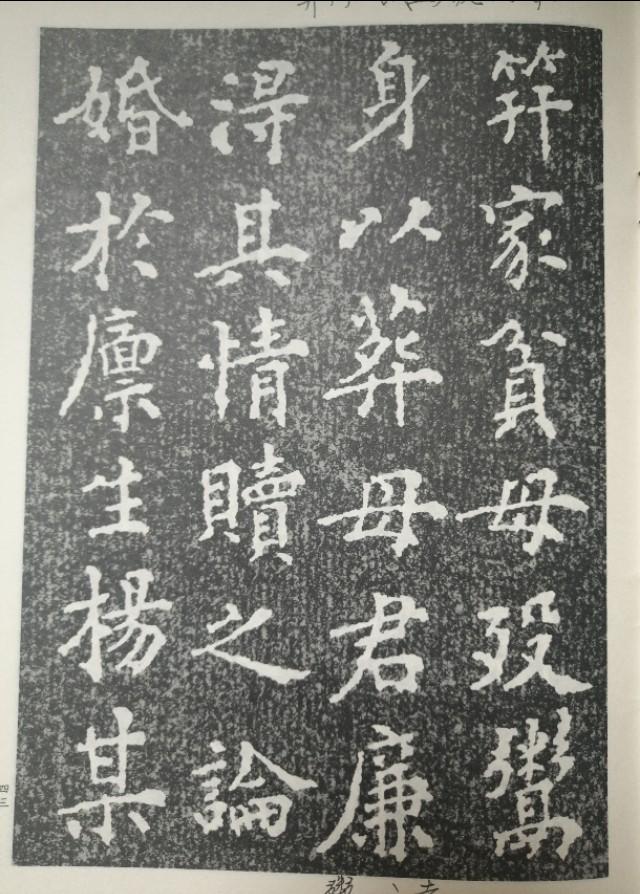 笄家貧母歿鬻
身以葬母君廉
淂其情贖之論
婚於廪生楊某
四三